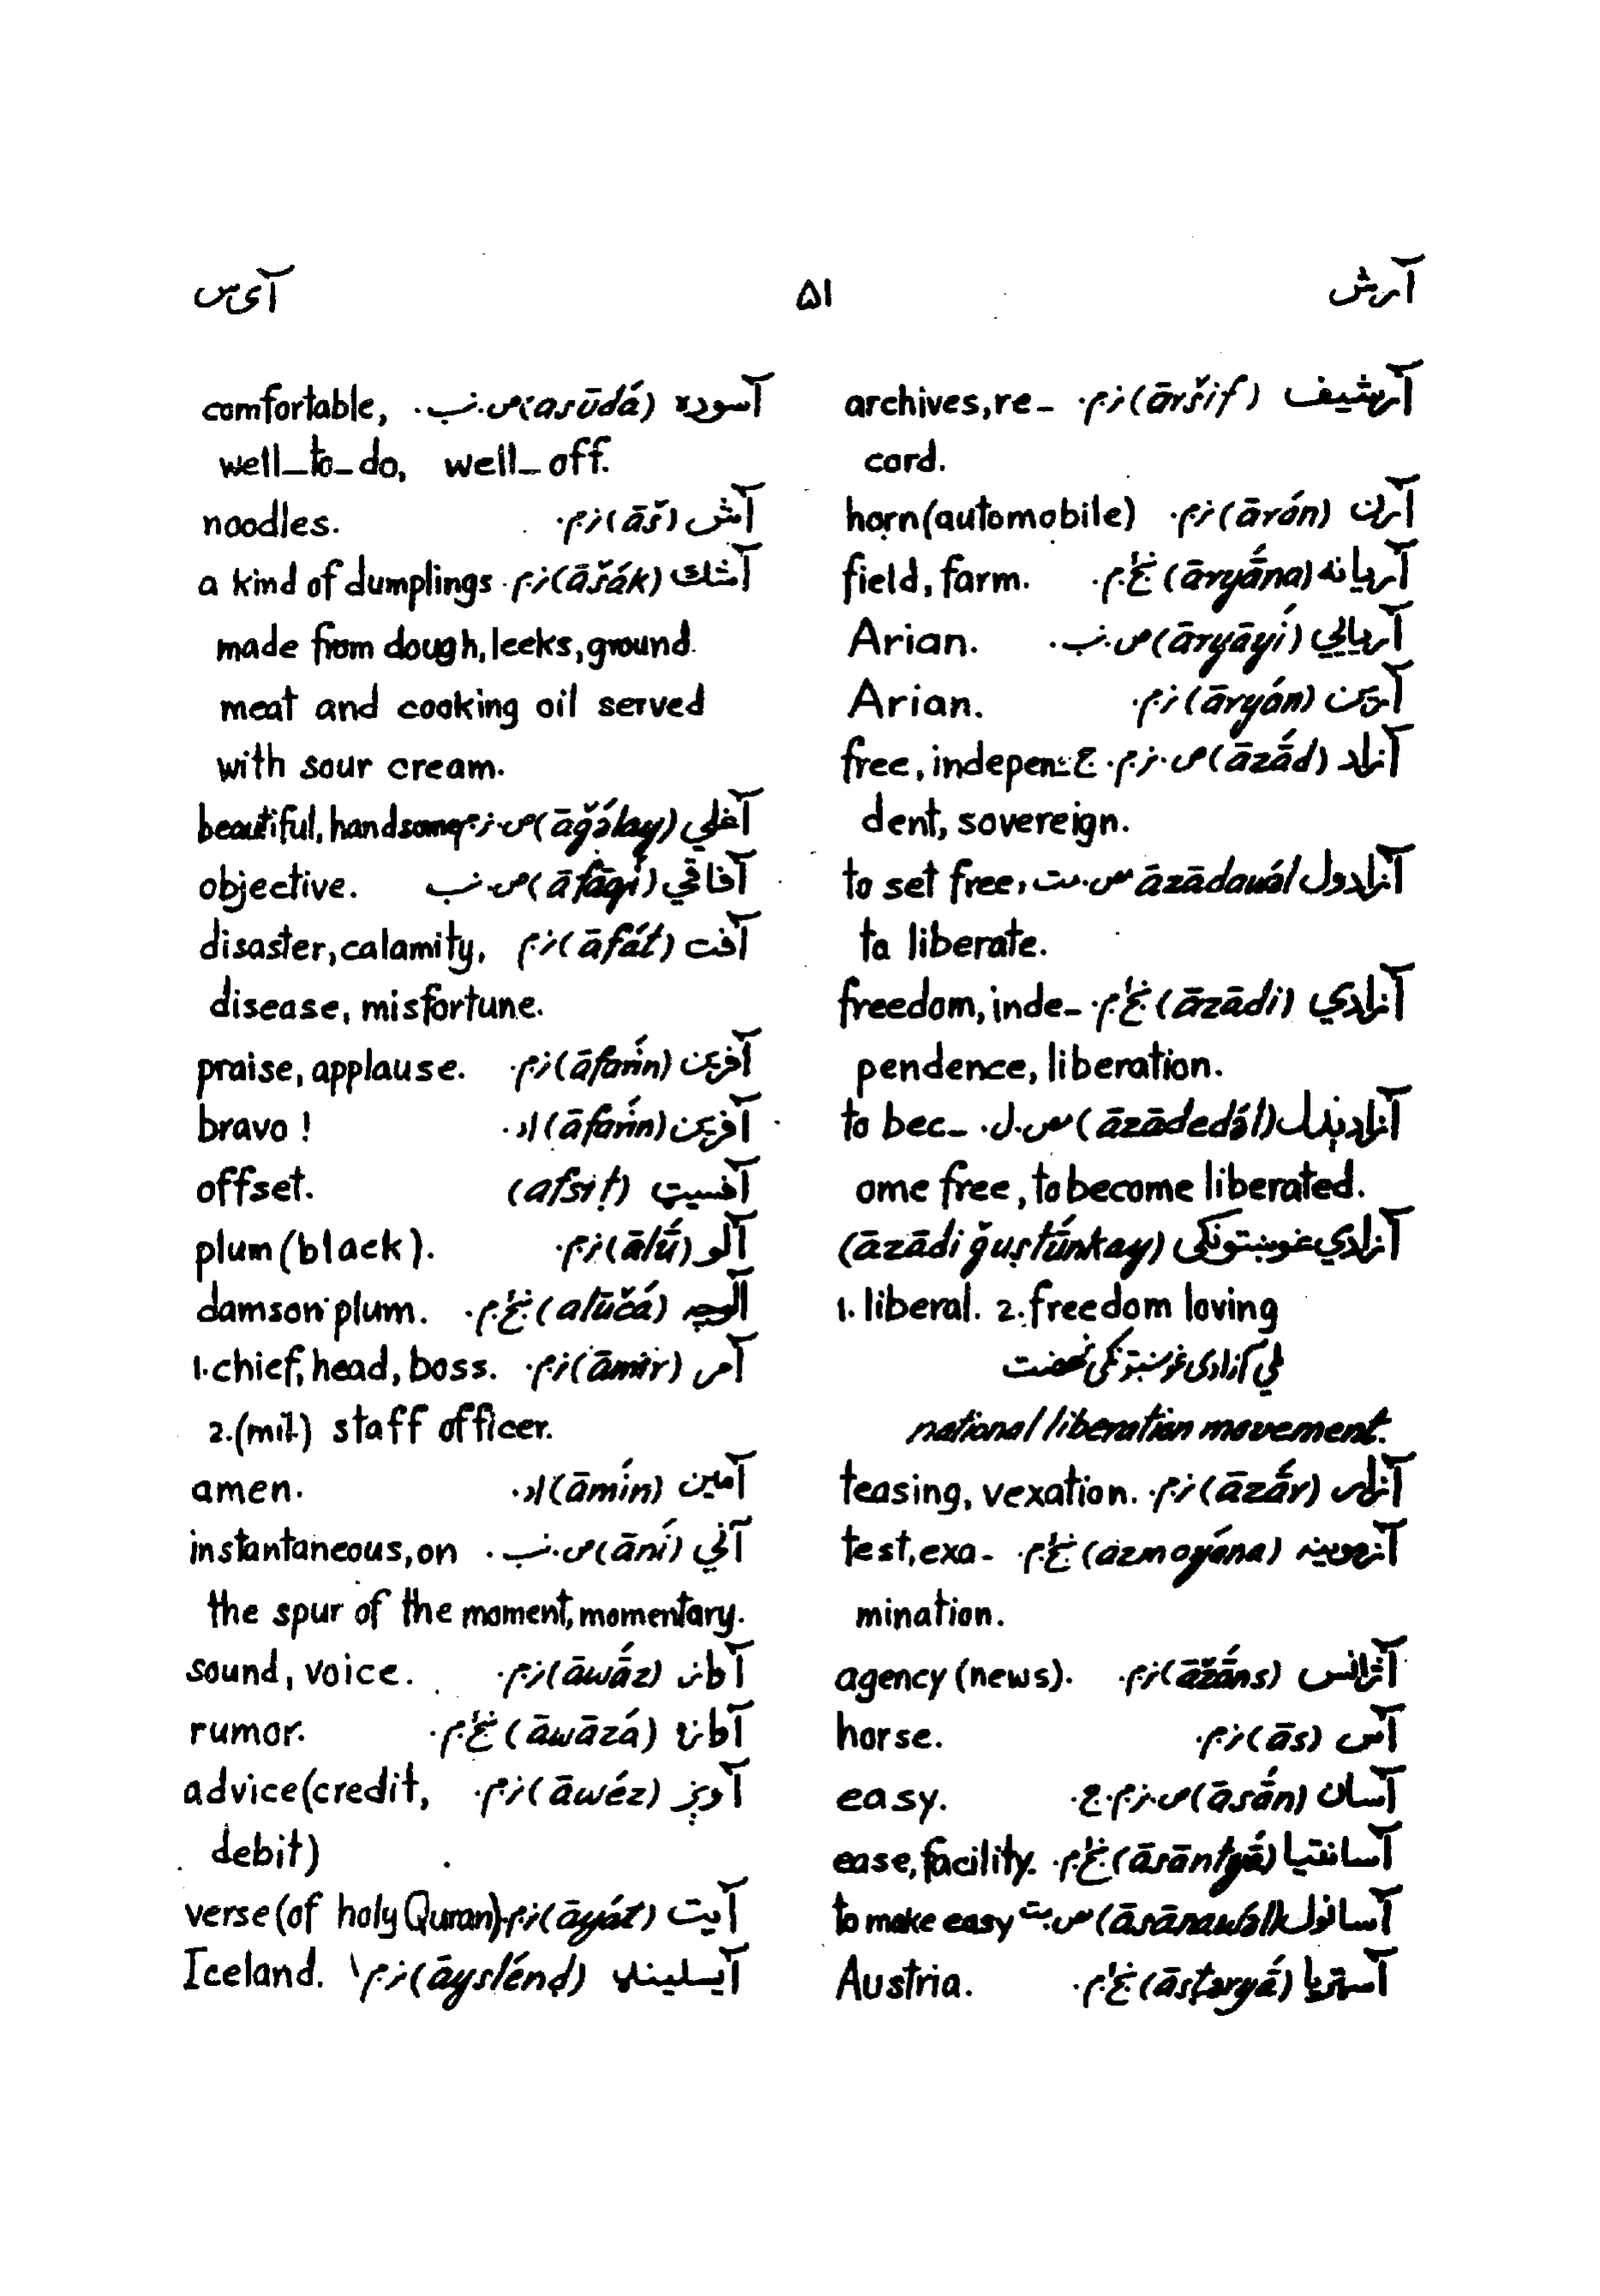 آرش ۵۱ آی‌س
آرشیف (āršif) ن.م. archives, re-
cord.
آرن (ārán) ن.م. horn (automobile)
آریانه (āryā́na) field, farm.
آریایي (āryāyí) ص.ب. Arian.
آرین (āryán) ن.م. Arian.
آزاد (āzā́d) ص.ن.م.ج free, indepen-
dent, sovereign.
آزادول āzādawə́l to set free,
to liberate.
آزادي (āzādi) freedom, inde-
pendence, liberation.
آزادېدل (āzādedə́l) ل. to bec-
ome free, to become liberated.
آزادي غوښتونکی (āzādi ǧuṣtū́nkay)
1. liberal. 2. freedom loving
ملي آزادی غوښتونکی نهضت
national liberation movement.
آزار (āzā́r) ن.م. teasing, vexation.
آزموینه (āzmoyə́na) test, exa-
mination.
آژانس (āžā́ns) ن.م. agency (news).
آس (ās) ن.م. horse.
آسان (āsā́n) ص.ن.م.ج. easy.
آسانتیا (āsāntyā́) ease, facility.
آسانول (āsānawə́l) to make easy
آستریا (āsṭəryā́) Austria.
آسوده (asūdá) ص.ب. comfortable,
well-to-do, well-off.
آش (āš) ن.م. noodles.
آشک (āšák) ن.م. a kind of dumplings
made from dough, leeks, ground
meat and cooking oil served
with sour cream.
آغلی (āǧə́lay) ص.ن.م. beautiful, handsome
آفاقي (āfāqí) ص.ب objective.
آفت (āfát) ن.م disaster, calamity,
disease, misfortune.
آفرین (āfarín) ن.م. praise, applause.
آفرین (āfarín) اد. bravo !
آفسیټ (afsiṭ) offset.
آلو (ālū́) ن.م. plum (black).
آلوچه (alūčá) damson plum.
آمر (āmír) ن.م. 1. chief, head, boss.
2. (mil.) staff officer.
آمین (āmín) اد. amen.
آني (āní) ص.ب. instantaneous, on
the spur of the moment, momentary.
آواز (āwā́z) ن.م. sound, voice.
آوازه (āwāzá) rumor.
آوېز (āwéz) ن.م. advice (credit,
debit)
آیت (āyát) ن.م verse (of holy Quran)
آیسلینډ (āyslénḍ) ن.م Iceland.